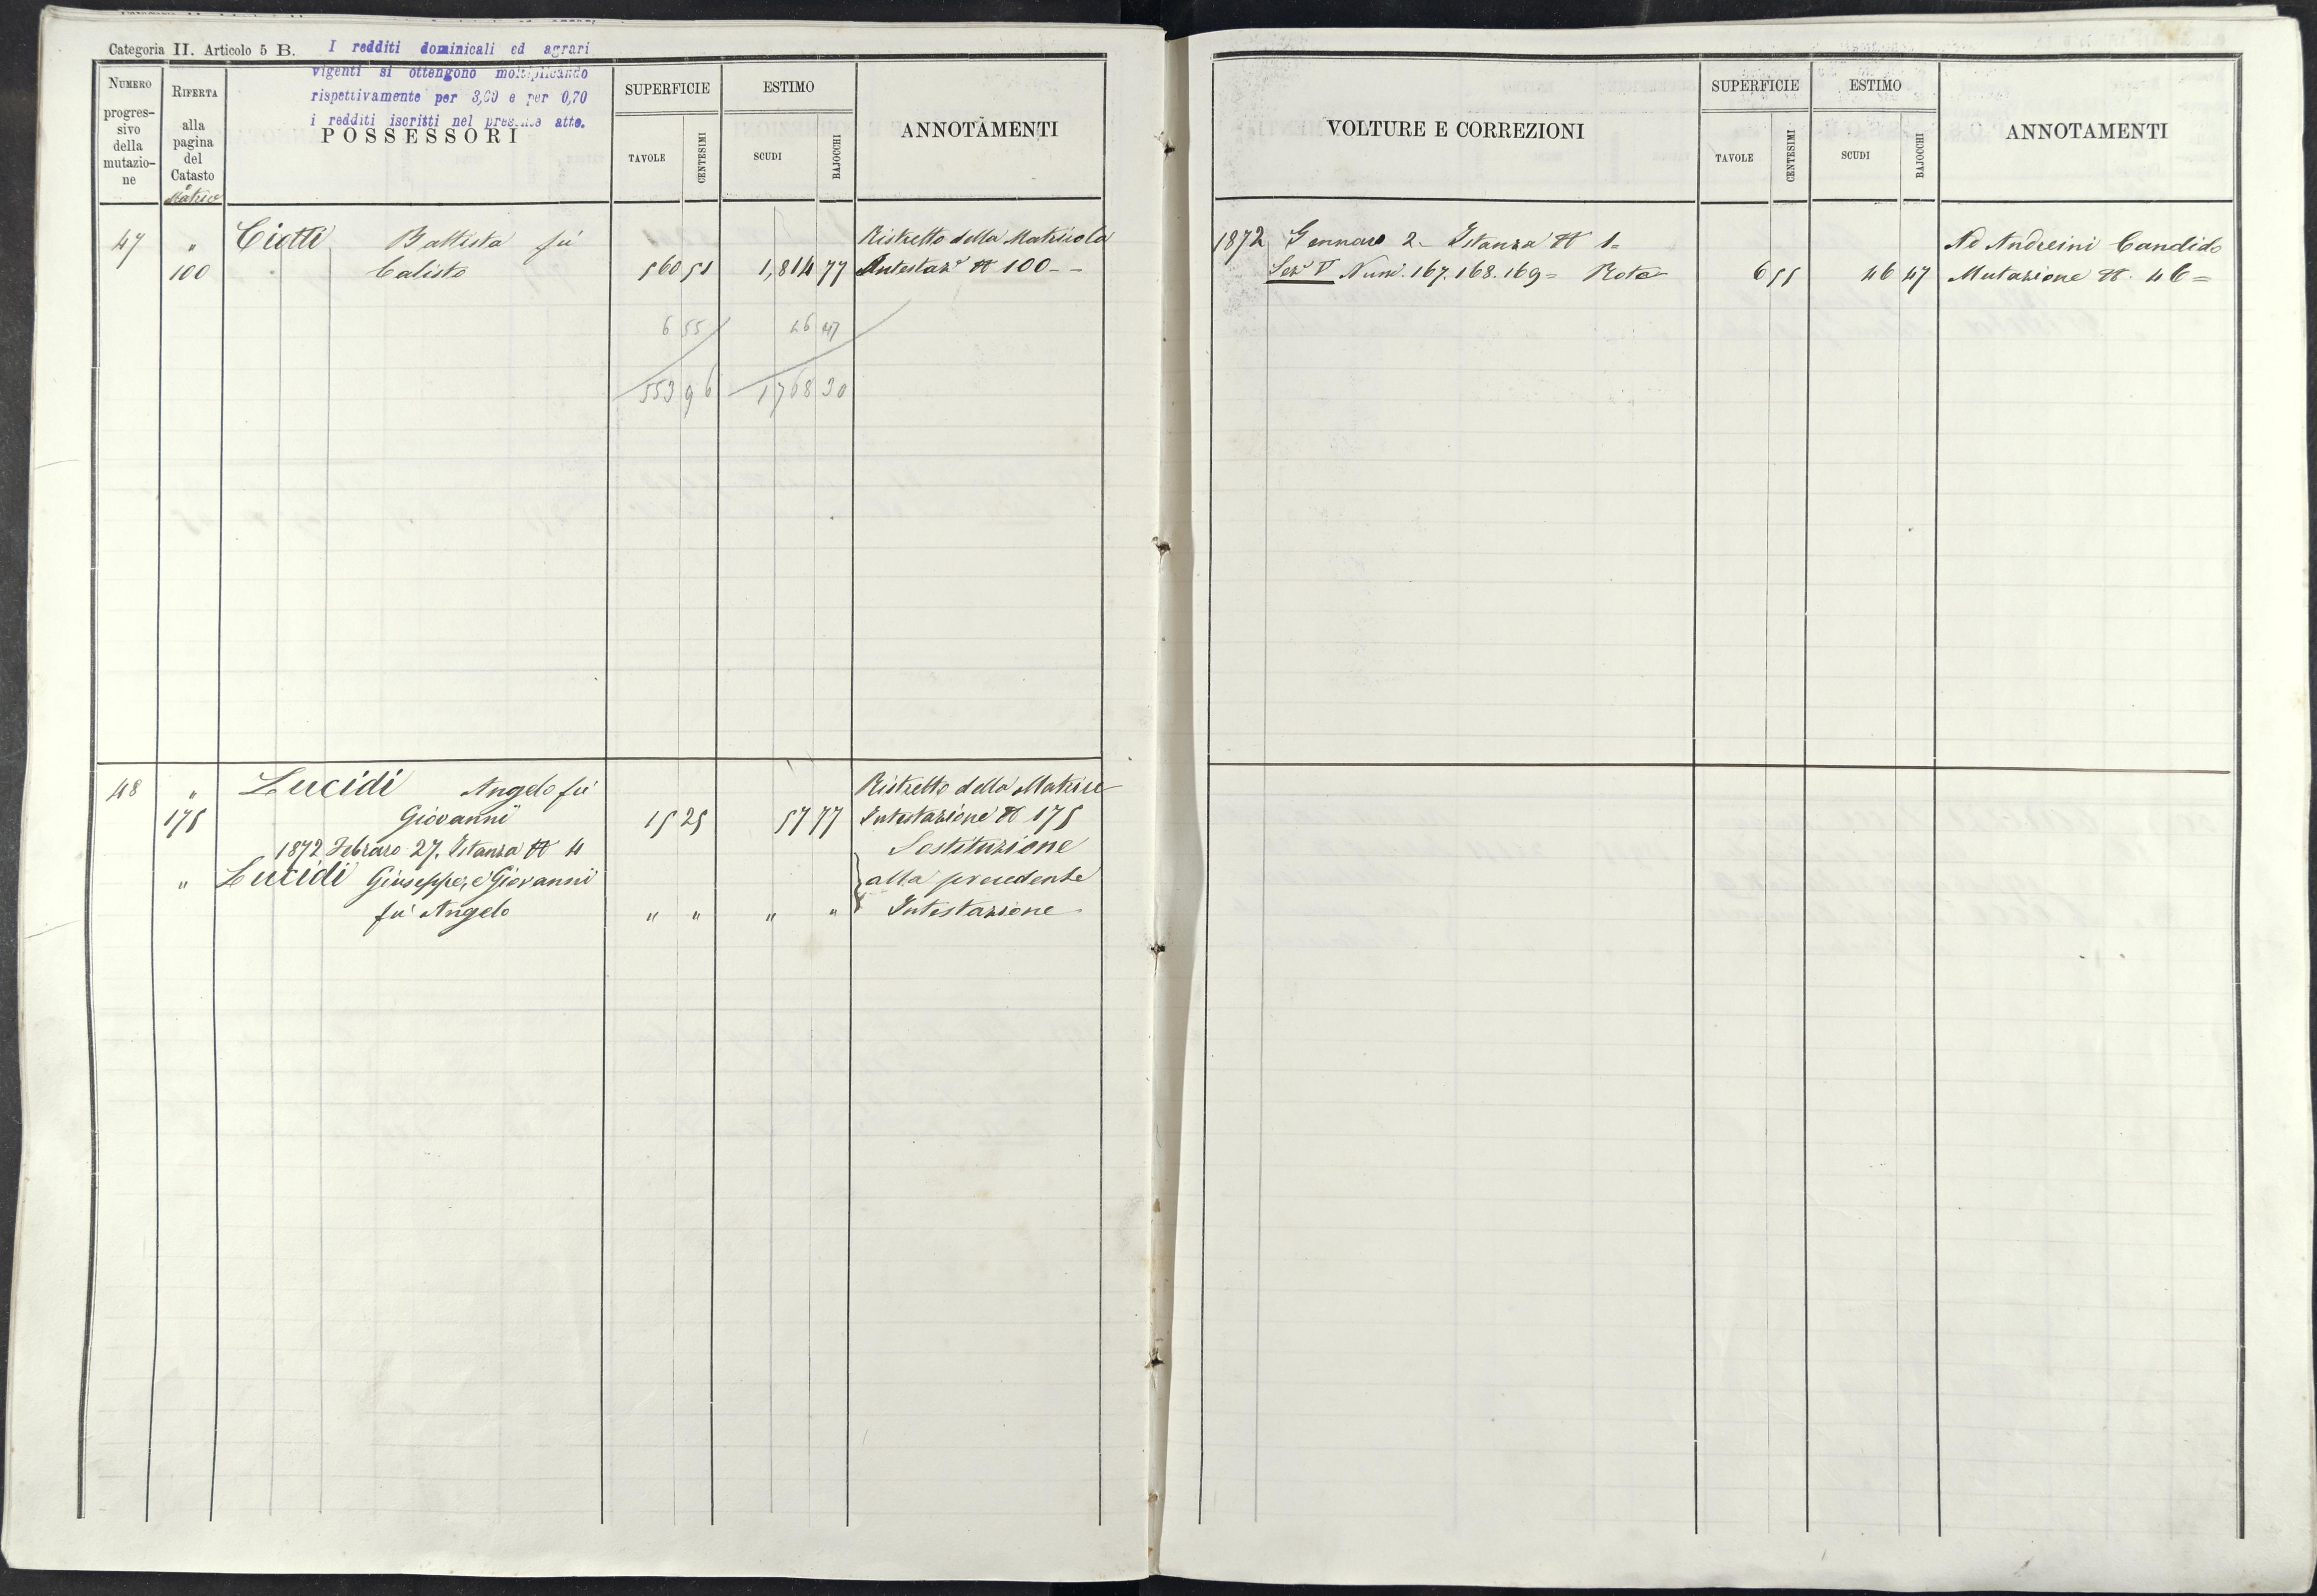 Categoria II. Articolo 5 B.
I redditi dominicali ed agrari
vigenti si ottengono moltiplicando
rispettivamente per 3,60 e per 0,70
i redditi iscritti nel presente atto.
NUMERO
progres-
sivo
della
mutazio-
ne
RIFERTA
alla
pagina
del
Catasto
Matrice
POSSESSORI
SUPERFICIE
TAVOLE
CENTESIMI
ESTIMO
SCUDI
BAJOCCHI
ANNOTAMENTI
47 " Ciotti Battista fù Ristretto della Matricola
100 Calisto 560 51 1,814 77 Intestaze N 100 - -
6 55 46 47
553 96 1768 30
48 " Lucidi Angelo fù Ristretto della Matrice
175 Giovanni 15 25 57 77 Intestazione N 175
1872 Febraro 27. Istanza N 4 Sostituzione
" Lucidi Giuseppe, e Giovanni alla precedente
fù Angelo " " " " Intestazione
VOLTURE E CORREZIONI
SUPERFICIE
TAVOLE
CENTESIMI
ESTIMO
SCUDI
BAJOCCHI
ANNOTAMENTI
1872 Gennaro 2 - Istanza N 1 = Ad Andreini Candido
Seze V Numi. 167. 168. 169 = Rota 6 55 46 47 Mutazione N. 46 =